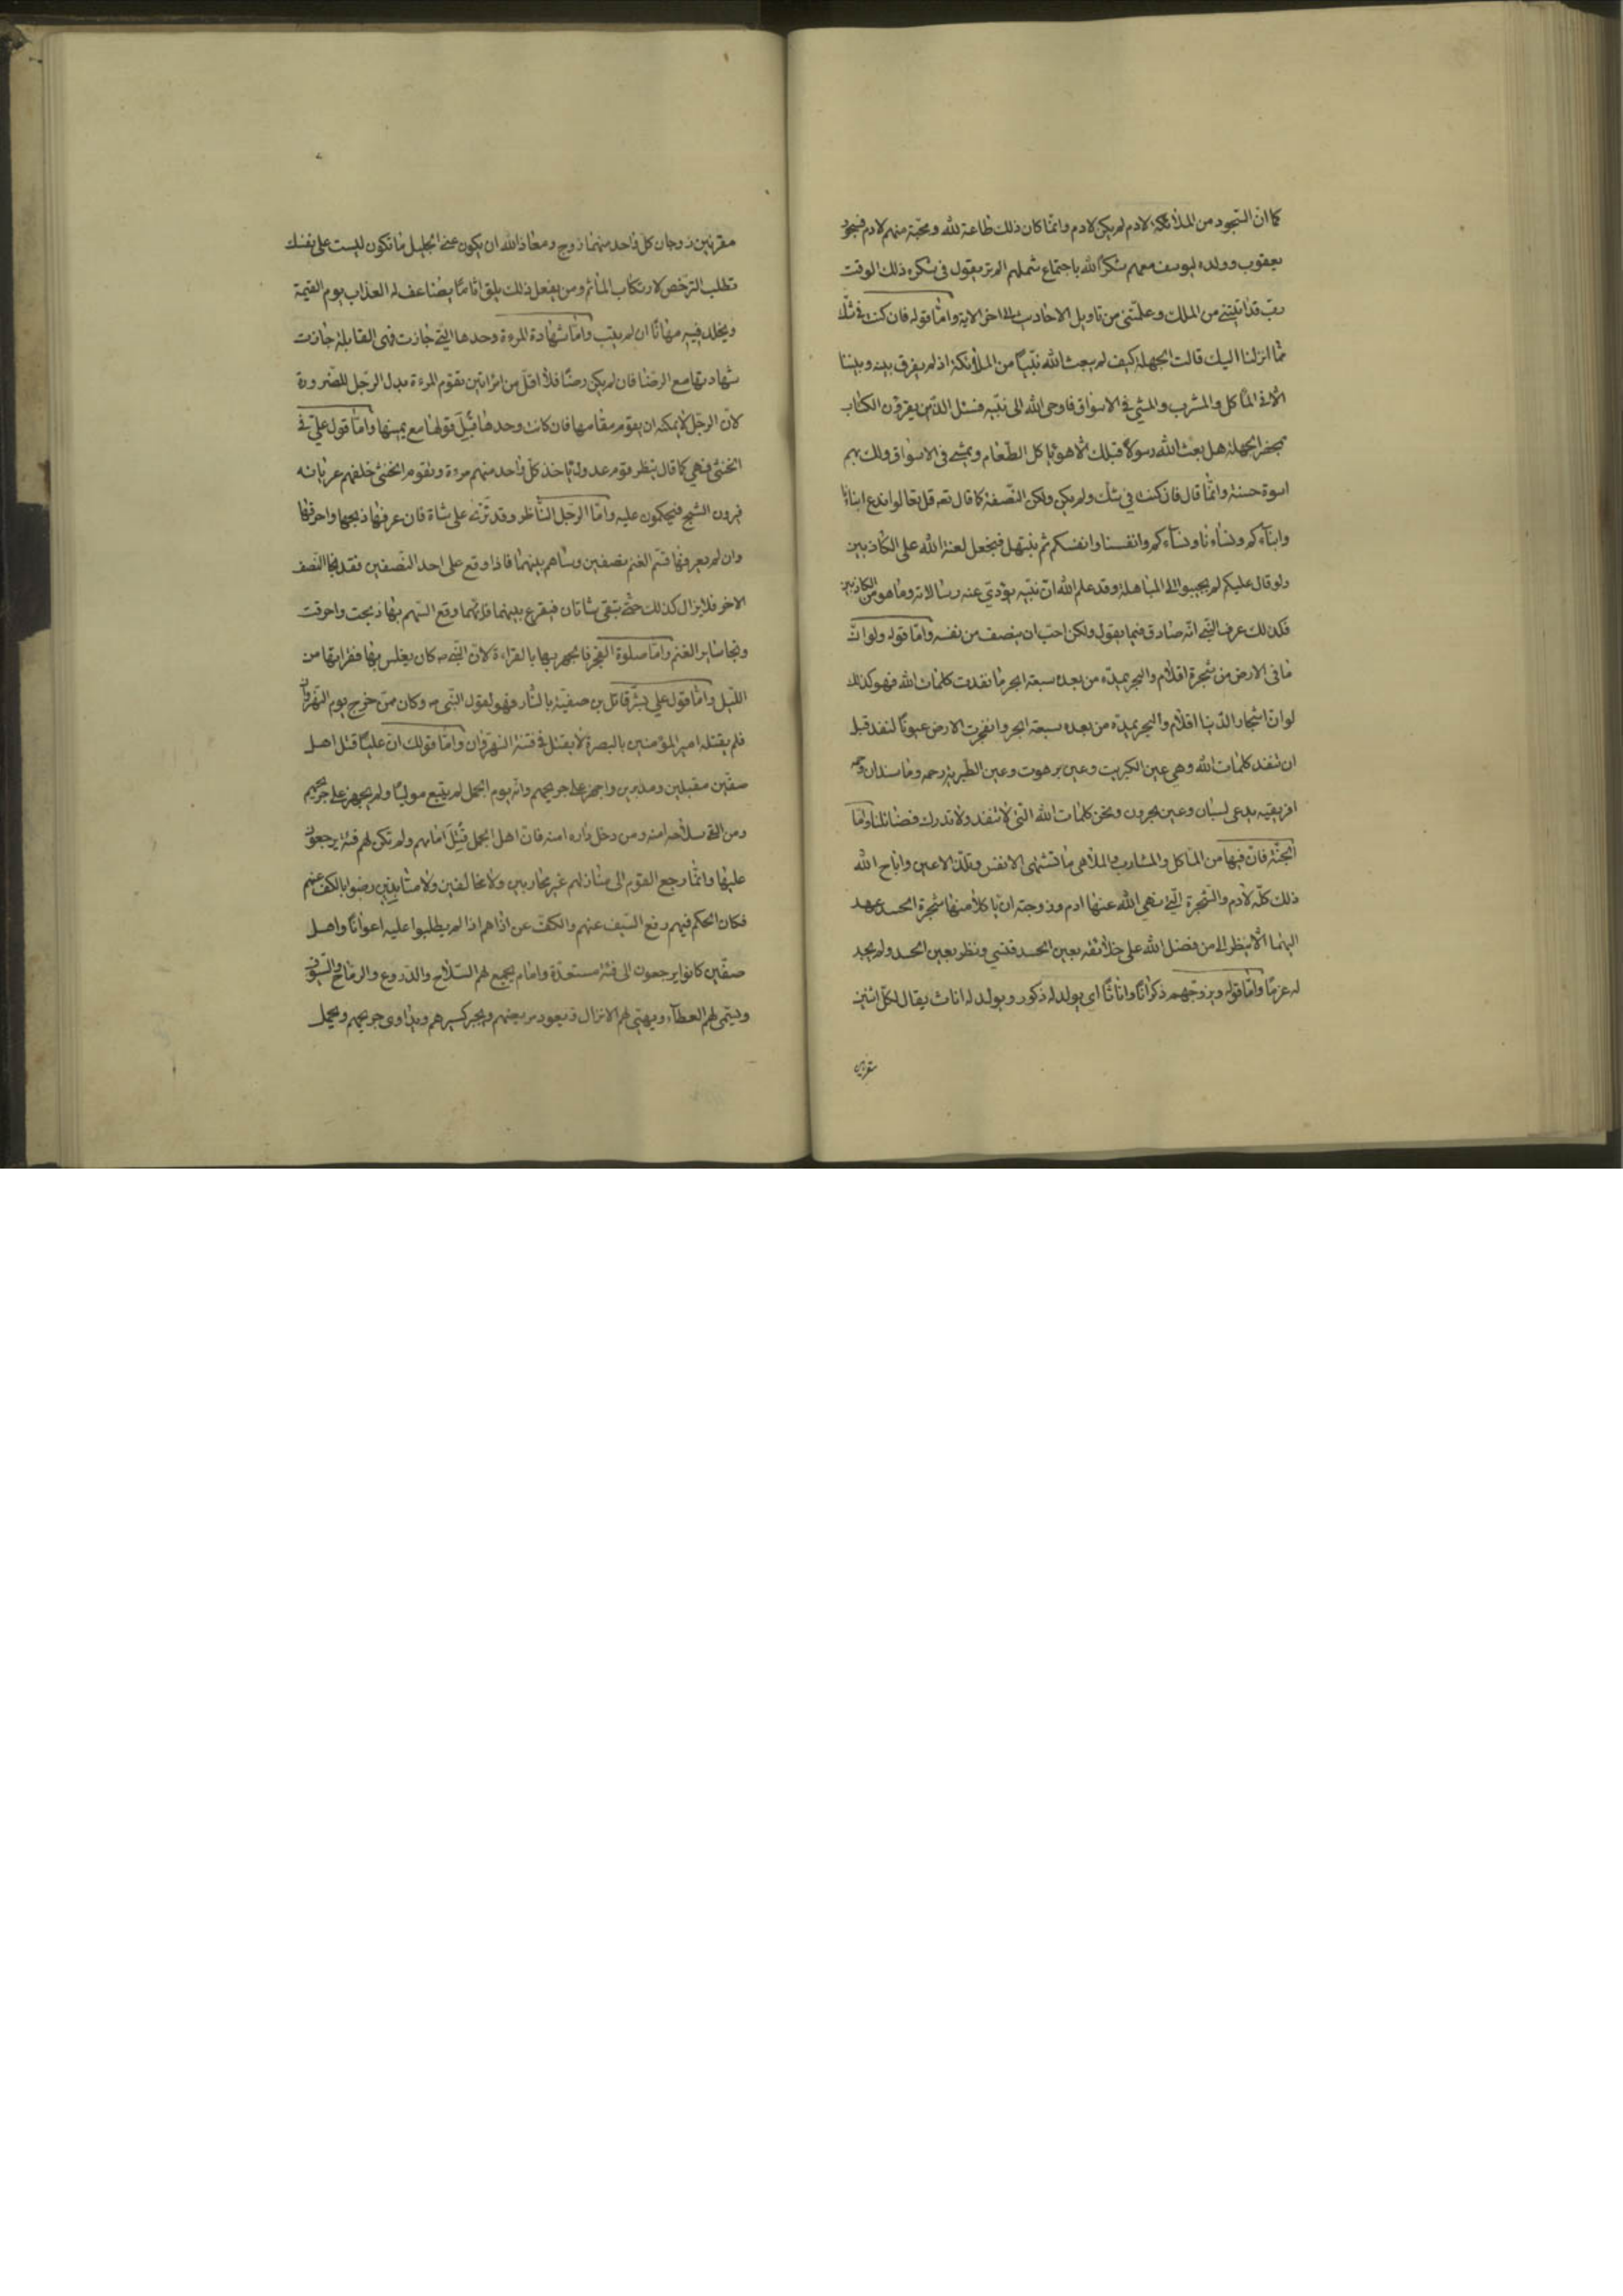 كما انّ السّجود من الملائكة لادم لم يكن لادم وانّما كان ذلك طاعة لله ومحبّة منهم لادم فسجود
يعقوب وولده ليوسف معهم شكرًا لله باجتماع شملهم الم تر يقول فى شكره ذلك الوقت
ربّ قد اتيتنى من الملك وعلّمتنى من تاويل الاحاديث الى اخر الاية وامّا قوله فان كنت فى شكّ
ممّا انزلنا اليك قالت الجهلة كيف لم يبعث الله نبيًّا من الملائكة اذ لم يفرق بينه وبيننا
الّا فى المأكل والمشرب والمشى فى الاسواق فاوحى الله الى نبيّه فسئل الّذين يقرؤن الكتاب
بمحضر الجهلة هل بعث الله رسولًا قبلك الّا هو يأكل الطّعام ويمشى فى الاسواق ولك بهم
اسوة حسنة وانّما قال فان كنت فى شكّ ولم يكن ولكن النّصفة كما قال تعه قل تعالوا ندع ابناءنا
وابناءكم ونساءنا ونساءكم وانفسنا وانفسكم ثم نبتهل فنجعل لعنة الله على الكاذبين
ولو قال عليكم لم يجيبوا الى المباهلة وقد علم الله انّ نبيّه يؤدّى عنه رسالاته وما هو من الكاذبين
فكذلك عرف النبى انّه صادق فيما يقول ولكن احبّ ان ينصف من نفسه وامّا قوله ولو انّ
ما فى الارض من شجرة اقلام والبحر يمدّه من بعده سبعة ابحر ما نفدت كلمات الله فهو كذلك
لو انّ اشجار الدّنيا اقلام والبحر يمدّه من بعده سبعة ابحر وانفجرت الارض عيونًا لنفد قبل
ان تنفد كلمات الله وهى عين الكبريت وعين برهوت وعين الطبرية وحمه وماسندان وحمه
افريقيه يدعى لسبان وعين بحرون ونحن كلمات الله الّتى لا تنفد ولا تدرك فضائلنا وامّا
الجنّة فانّ فيها من المأكل والمشارب والملاهى ما تشتهى الانفس وتلذّ الاعين واباح الله
ذلك كلّه لادم والشّجرة الّتى نهى الله عنها ادم وزوجته ان يأكلا منها شجرة الحسد عهد
اليهما الّا ينظر الى من فضل الله على خلائقه بعين الحسد فنسى ونظر بعين الحسد ولم يجد
له عزمًا وامّا قوله ويزوّجهم ذكرانًا واناثًا اى يولد له ذكور ويولد له اناث يقال لكلّ اثنين
مقرنين
مقرنين زوجان كلّ واحد منهما زوج ومعاذ الله ان يكون عنى الجليل ما تكون لبست على نفسك
تطلب الترخّص لارتكاب المأثم ومن يفعل ذلك يلق اثامًا يضاعف له العذاب يوم القيمة
ويخلد فيه مهانًا ان لم يتب وامّا شهادة المرءة وحدها الّتى جازت فهى القابلة جازت
شهادتها مع الرضا فان لم يكن رضًا فلا اقلّ من امرأتين تقوم المرءة بدل الرّجل للضّرورة
لانّ الرجل لا يمكنه ان يقوم مقامها فان كانت وحدها قُبِلَ قولها مع يمينها وامّا قول على فى
الخنثى فهى كما قال ينظر قوم عدول يأخذ كلّ واحد منهم مرءة وتقوم الخنثى خلفهم عريانه
فيرون الشبح فيحكمون عليه وامّا الرجل النّاظر وقد نزى على شاة فان عرفها ذبحها واحرقها
وان لم يعرفها قسّم الغنم نصفين وساهم بينهما فاذا وقع على احد النّصفين فقد نجا النّصف
الاخر فلا يزال كذلك حتّى تبقى شاتان فيقرع بينهما فايّهما وقع السّهم بها ذبحت واحرقت
ونجا سائر الغنم وامّا صلوة الفجر فالجهر بها بالقراءة لانّ النبى ص كان يغلس بها فقرائتها من
اللّيل وامّا قول على بشّر قاتل بن صفيّة بالنّار فهو لقول النّبى ص وكان ممّن خرج يوم النّهروان
فلم يقتله امير المؤمنين بالبصرة لا يقتل فى فتنة النهروان وامّا قولك انّ عليًّا قتل اهل
صفّين مقبلين ومدبرين واجهز على جريحهم وانّه يوم الجمل لم يتبع موليًّا ولم يجهز على جريحهم
ومن القى سلاحه امنه ومن دخل داره امنه فانّ اهل الجمل قُتِلَ امامهم ولم تكن لهم فئة يرجعون
عليها وانّما رجع القوم الى منازلهم غير محاربين ولا مخالفين ولا منابذين رضوا بالكفّ عنهم
فكان الحكم فيهم رفع السّيف عنهم والكفّ عن اذاهم اذا لم يطلبوا عليه اعوانًا واهل
صفّين كانوا يرجعون الى فئة مستعدّة وامام يجمع لهم السّلاح والدّروع والرماح والسّيوف
ويتمى لهم العطاء ويهيّى لهم الانزال ويعود مريضهم ويجبر كسيرهم ويداوى جريحهم ويحمل